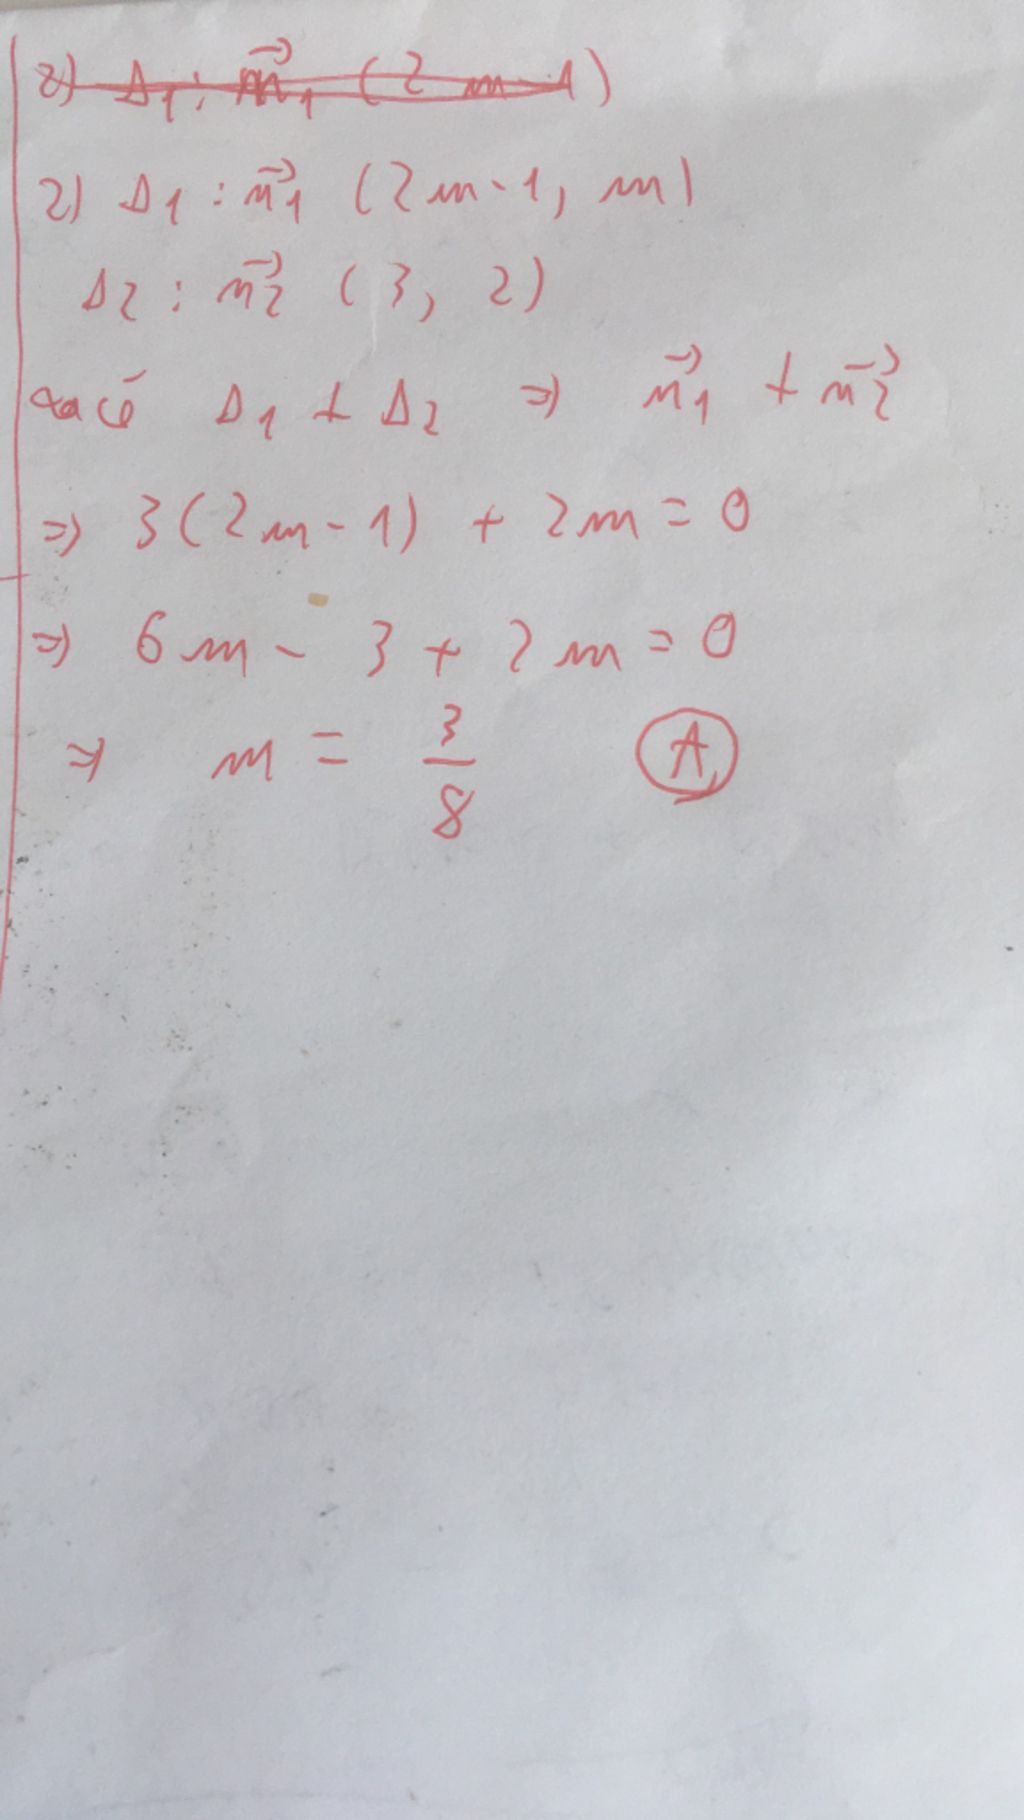 2) Δ1 : n⃗1 (2m-1)
2) Δ1 : n⃗1 (2m-1, m)
Δ2 : n⃗2 (3, 2)
ta có Δ1 ⊥ Δ2 ⇒ n⃗1 ⊥ n⃗2
⇒ 3(2m-1) + 2m = 0
⇒ 6m - 3 + 2m = 0
⇒ m = 3/8 A